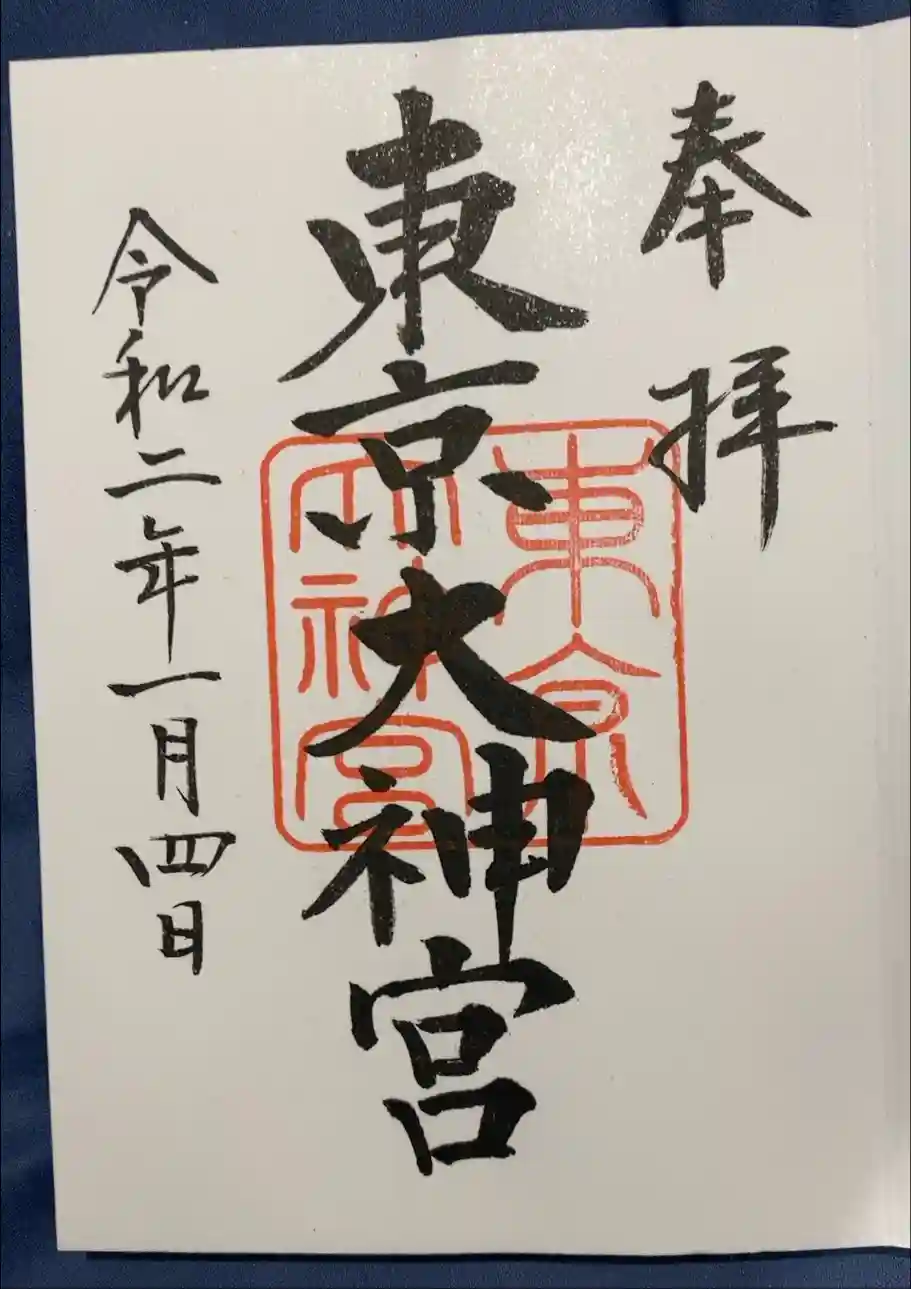 奉拝
東京大神宮
東京大神宮
令和二年一月四日